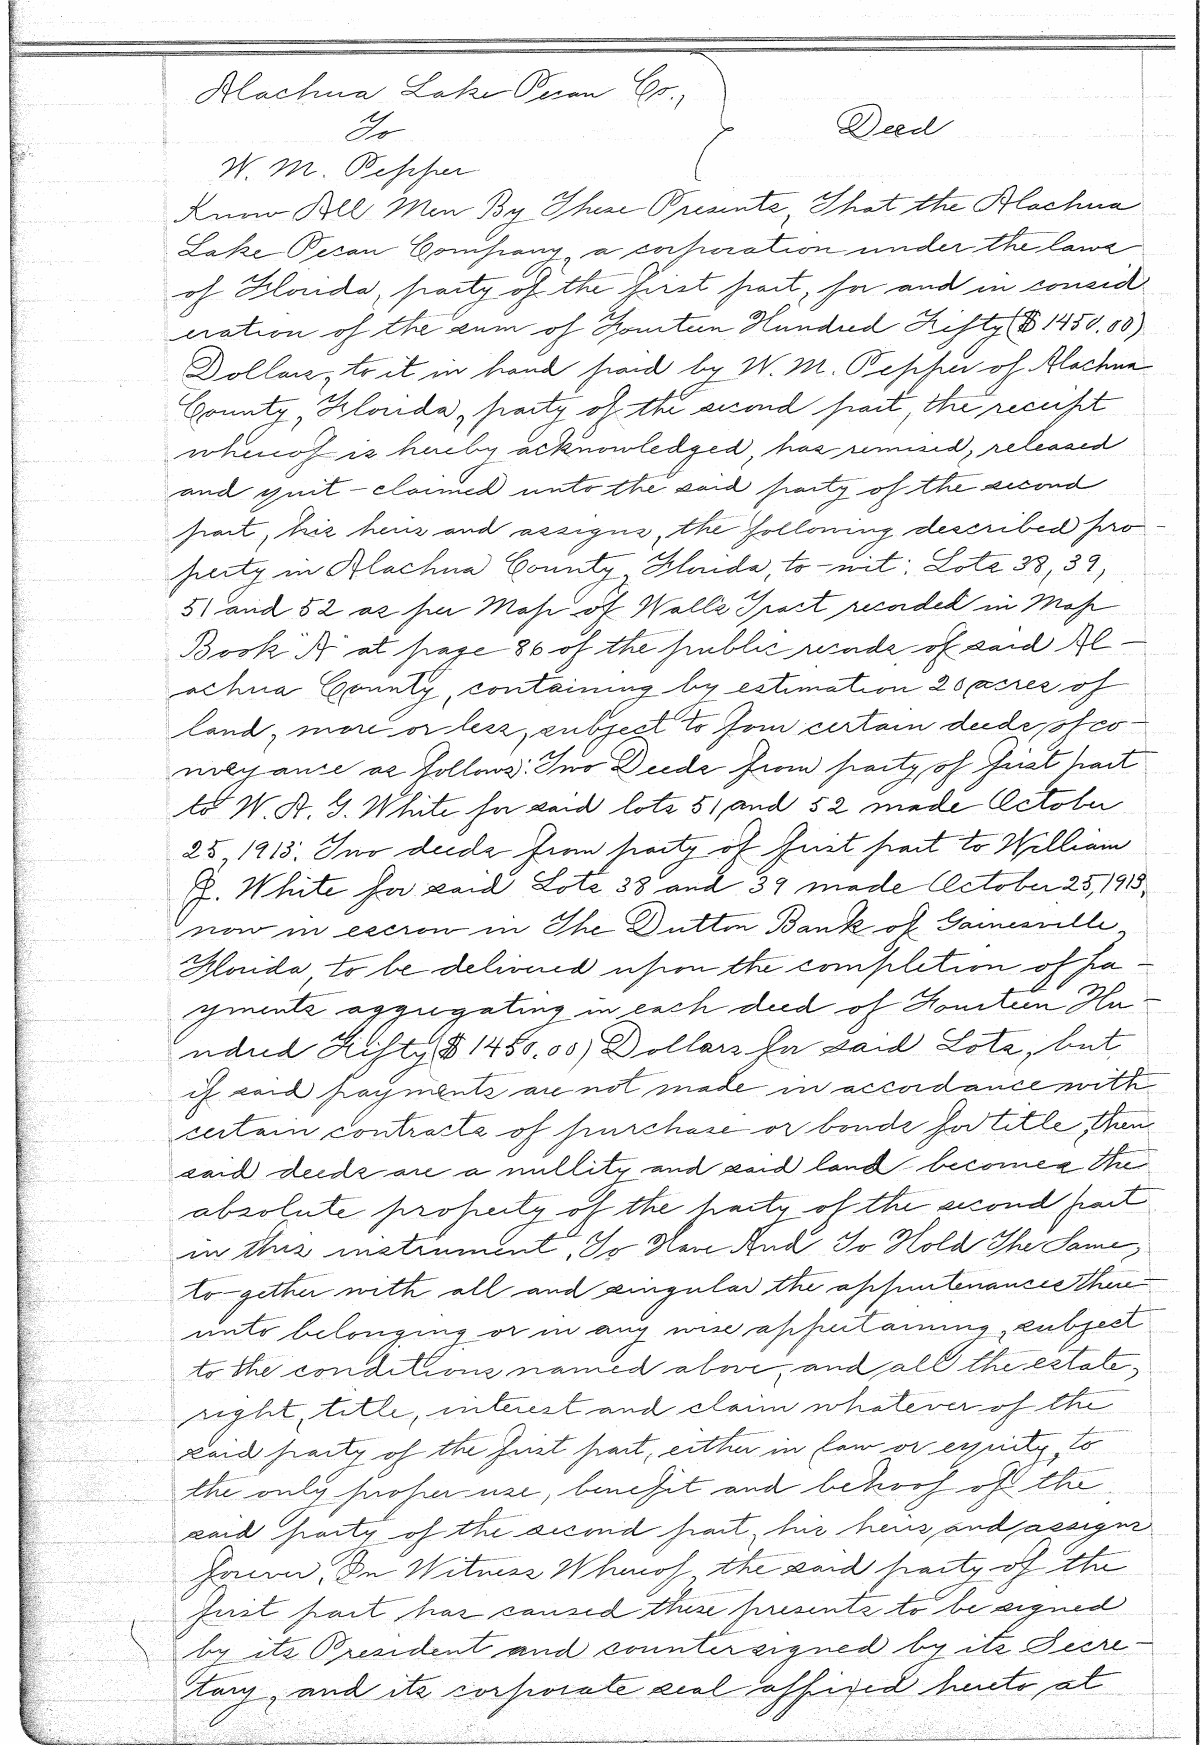 Alachua Lake Pecan Co.,
To
Deed
W. M. Pepper
Know All Men By These Presents, That the Alachua
Lake Pecan Company, a corporation under the laws
of Florida, party of the first part, for and in consid
eration of the sum of Fourteen Hundred Fifty ($1450.00)
Dollars, to it in hand paid by W. M. Pepper of Alachua
County, Florida, party of the second part, the receipt
whereof is hereby acknowledged, has remised, released
and quit-claimed unto the said party of the second
part, his heirs and assigns, the following described pro-
perty in Alachua County, Florida, to-wit: Lots 38, 39,
51 and 52 as per Map of Walls Tract recorded in Map
Book "A" at page 86 of the public records of said Al-
achua County, containing by estimation 20 acres of
land, more or less, subject to four certain deeds of co-
nveyance as follows: Two Deeds from party of first part
to W. A. G. White for said lots 51 and 52 made October
25, 1913. Two deeds from party of first part to William
J. White for said Lots 38 and 39 made October 25, 1913,
now in escrow in The Dutton Bank of Gainesville,
Florida, to be delivered upon the completion of pa-
yments aggregating in each deed of Fourteen Hu-
ndred Fifty ($1450.00) Dollars for said Lots, but
if said payments are not made in accordance with
certain contracts of purchase or bonds for title, then
said deeds are a nullity and said land becomes the
absolute property of the party of the second part
in this instrument, To Have And To Hold The Same,
to-gether with all and singular the appurtenances there
unto belonging or in any wise appertaining, subject
to the conditions named above, and all the estate,
right, title, interest and claim whatever of the
said party of the first part, either in law or equity, to
the only proper use, benefit and behoof of the
said party of the second part, his heirs and assigns
forever. In Witness Whereof, the said party of the
first part has caused these presents to be signed
by its President and countersigned by its Secre-
tary, and its corporate seal affixed hereto at